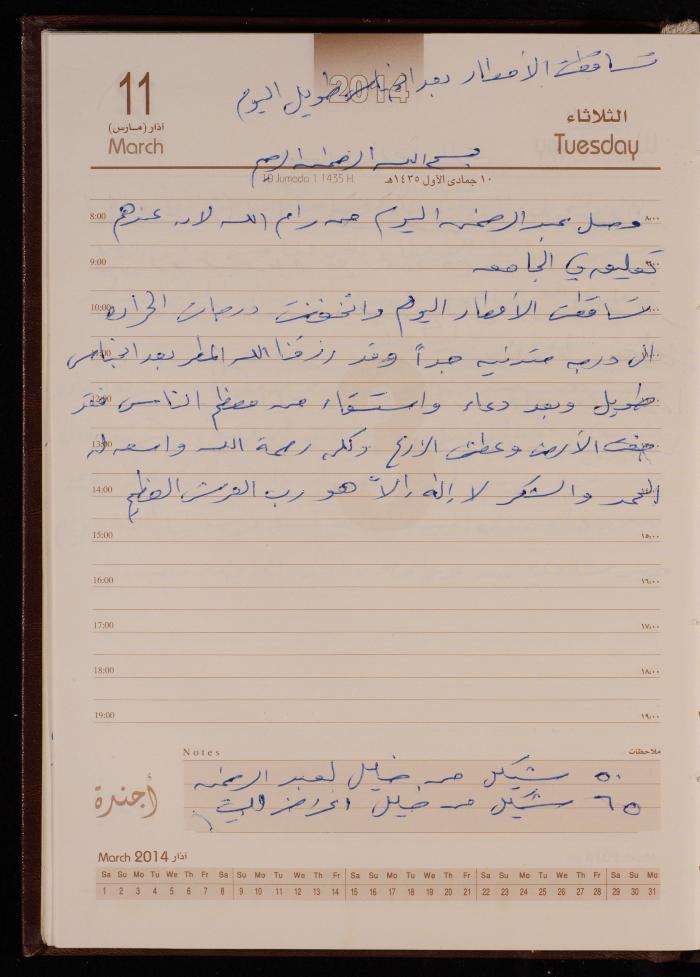 تساقطت الأمطار بعد احتباس طويل اليوم
2014
11
آذار (مارس)
March
الثلاثاء
Tuesday
بسم الله الرحمن الرحيم
10 Jumada 1 1435 H
١٠ جمادى الأول ١٤٣٥هـ
8:00 وصل عبد الرحمن اليوم من رام الله لان عندهم ٨،٠٠
9:00 تعليق في الجامعه
10:00 تساقطت الأمطار اليوم وانخفضت درجات الحراره
الى درجه متدنيه جداً وقد رزقنا الله المطر بعد احتباس
طويل وبعد دعاء واستسقاء من معظم الناس فقد
13:00 جفت الأرض وعطش الزرع ولكن رحمة الله واسعه له
14:00 الحمد والشكر لا إله إلا هو رب العرش العظيم
15:00 ١٥،٠٠
16:00 ١٦،٠٠
17:00 ١٧،٠٠
18:00 ١٨،٠٠
19:00 ١٩،٠٠
Notes ملاحظات
٥٠ شيكل من خليل لعبد الرحمن
٦٥ شيكل من خليل اغراض البيت
أجندة
March 2014 آذار
Sa Su Mo Tu We Th Fr Sa Su Mo Tu We Th Fr Sa Su Mo Tu We Th Fr Sa Su Mo Tu We Th Fr Sa Su Mo
1 2 3 4 5 6 7 8 9 10 11 12 13 14 15 16 17 18 19 20 21 22 23 24 25 26 27 28 29 30 31